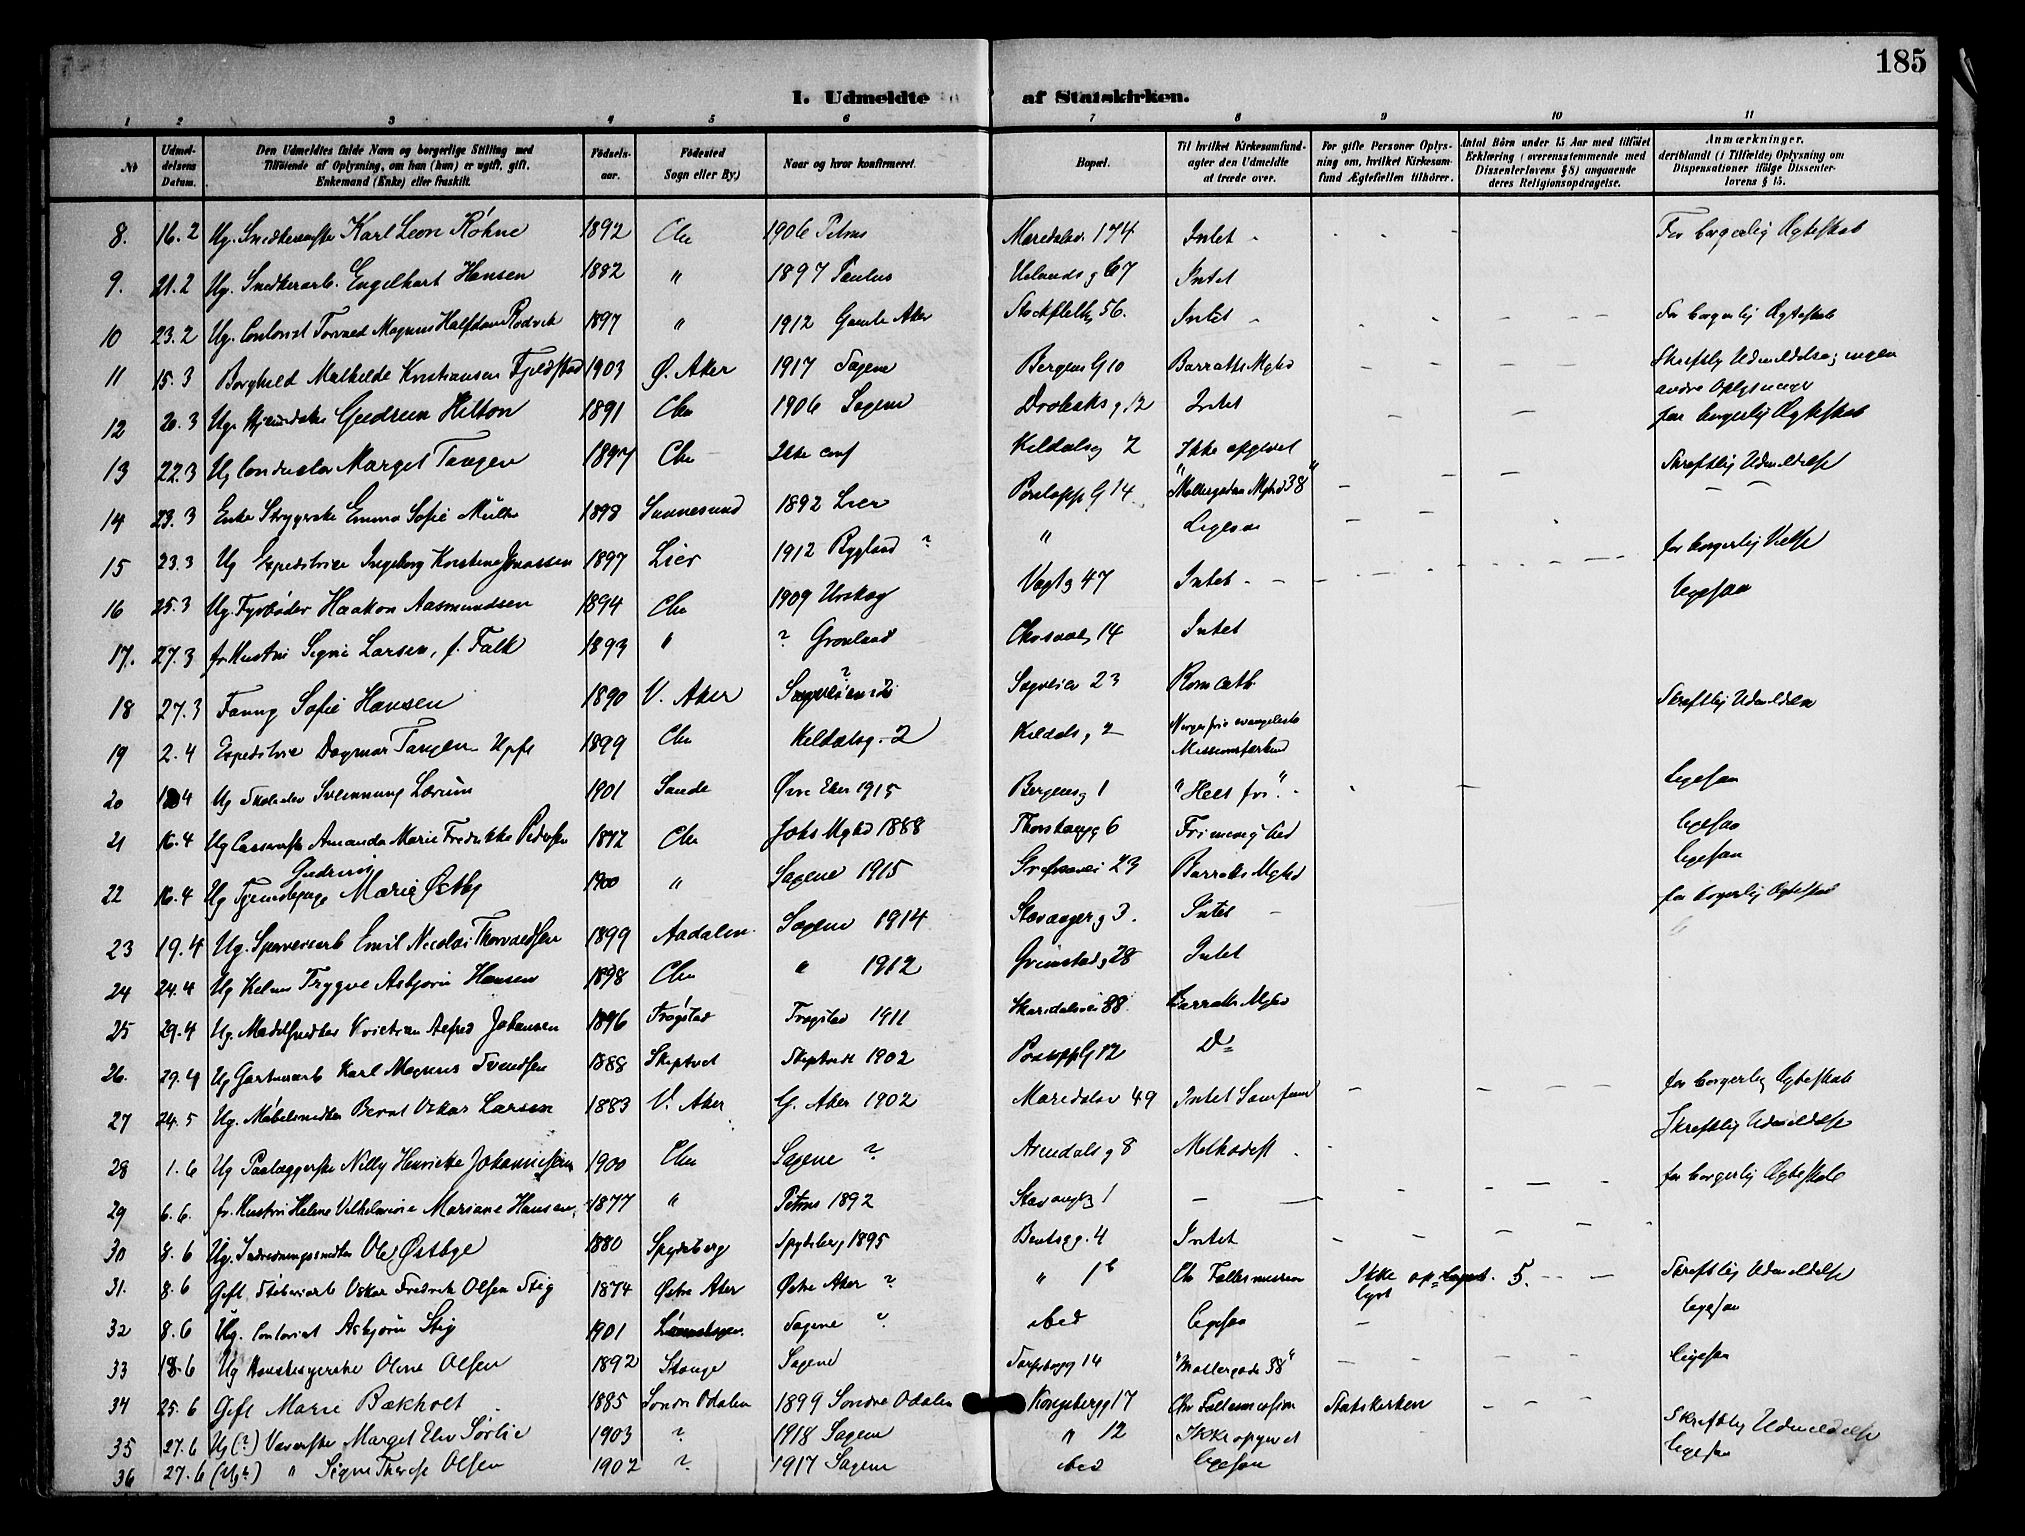 185
I. Udmeldte af Statskirken.
1 2 3 4 5 6 7 8 9 10 11
Nr Udmeldelsens Datum. Den Udmeldtes fulde Navn og borgerlige Stilling med Tilføiende af Oplysning, om han (hun) er ugift, gift, Enkemand (Enke) eller fraskilt. Fødselsaar. Fødested Sogn eller By.) Naar og hvor konfirmeret. Bopæl. Til hvilket Kirkesamfund agter den Udmeldte at træde over. For gifte Personer Oplysning om, hvilket Kirkesamfund Ægtefællen tilhører. Antal Börn under 15 Aar med tilföiet Erklæring (overensstemmende med Dissenterlovens § 8) angaaende deres Religionsopdragelse. Anmærkninger, deriblandt (i Tilfælde) Oplysning om Dispensationer ifölge Dissenterlovens § 15.
8. 16.2 Ug. Karl Leon Røhne 1892 Chr 1906 Petrus Maredalsv. 174 Intet - For borgerlig Ægteskab
9. 21.2 Ug. Snedkerarb. Engelhart Hansen 1882 " 1897 Paulus Uelands g 67 Intet
10 23.2 Ug. Contorist Torvald Magnus Halfdan Rodvik 1897 " 1912 Gamle Aker 56. Intet - For borgerlig Ægteskab
11 15.3 Borghild Mathilde Kristiansen Fjeldstad 1903 Ø. Aker 1917 Sagene Bergens G 10 Barratts Mghd Skriftlig Udmeldelse; ingen andre Oplysninger
12 20.3 Ug. Gudrun Hilton 1891 Chr 1906 Sagene Drobaks g 12 Intet for borgerlig Ægteskab
13 22.3 Ug Margit Tangen 1897 Chr Ikke conf Kildalsg 2 Ikke opgivet Skriftlig Udmeldelse
14 23.3 Enke Strygerske Emma Sofie 1898 Sannesund 1892 Lier G 14 "Møllergatens Mghd 38" — —
15 23.3 Ug Expeditrice Ingeborg Kirstine Jonassen 1897 Lier 1912 Rygland ? " Ligesaa for borgerlig Vielse
16 25.3 Ug. Fyrbøder Haakon Aasmundsen 1894 Chr 1909 Urskog Vogtsg 47 Intet - ligesaa
17. 27.3 fr. Hustru Signe Larsen, f. Falk 1893 " ? Grønland 14 Intet
18 27.3 Fanny Sofie Hansen 1890 V. Aker ? Sagveien 23 Rom cath. Skriftlig Udmeldelse
19 2.4 Expeditrice Dagmar Tangen 1899 Chr Kildalsg. 2 Kildals g 2 Norges frie evangeliske Missionsforbund
20 4 Ug Svennung Lærum 1901 Sande Øvre Eker 1915 Bergensg 1 "Helt fri". - ligesaa
21 16.4 Ug Amanda Marie Fredrikke Pedersen 1872 Chr Johs Mghd 1888 Thorshaugg 6 Frimenighed ligesaa
22 16.4 Ug Gudrun Marie Østby 1900 " Sagene 1915 Grefsenvei 23 Barratts Mghd ligesaa
23 19.4 Ug. Emil Nicolai Thorvaldsen 1899 Aadalen Sagene 1914 Stavanger g 3. Intet - for borgerlig Ægteskab
24 24.4 Ug Trygve Asbjørn Hansen 1898 Chr " 1912 Grimstad g 28 Intet
25 29.4 Ug. Kristian Alfred Johansen 1896 Trøgstad Trøgstad 1911 88 Barratts Mghd
26. 29.4 Ug Gartnerarb Karl Magnus Svendsen 1888 Skiptvet Skiptvedt 1902 G 12 Do
27 24.5 Ug. Møbelsnedker Bernt Oskar Larsen 1883 V. Aker G. Aker 1902 Maredalsv 49 Intet Samfund for borgerlig Ægteskab
28 1.6 Ug Paalæggerske Nilly Henriette Johannesen 1900 Chr Sagene ? Arendals g 8 Methodist - Skriftlig Udmeldelse
29 6.6. fr. Hustru Helene Vilhelmine Mariane Hansen 1877 " Petrus 1892 Stavangerg 1 — for borgerlig Ægteskab
30 8.6 Ug. Indredningssnedker Ole Østbye 1880 Spydeberg Spydeberg 1895 Bentseg. 4 Intet
31. 8.6 Gift Støberiarb Oskar Fredrik Olsen Stig 1874 Østre Aker Østre Aker ? " 1b Chr Fællesmission Ikke oplyst 5. Skriftlig Udmeldelse
32 8.6 Ug. Contorist Asbjørn Stig 1901 Sagene " ibid ligesaa ligesaa
33 18.6 Ug Hanskesyerske Oline Olsen 1892 Stange Sagene Torshaugg 14 "Møllergade 38" ligesaa
34 25.6 Gift Marie Bækholt 1885 Sondre Odalen 1899 Sondre Odalen Kongsbergg 17 Chr Fællesmission Statskirken
35 27.6 Ug (?) Væverske Margit Elev Sørlie 1903 ? 1918 Sagene " 12 Ikke opgivet Skriftlig Udmeldelse
36 27.6 (Ug?) " Signe Therese Olsen 1902 ? 1917 Sagene ibid ligesaa ligesaa